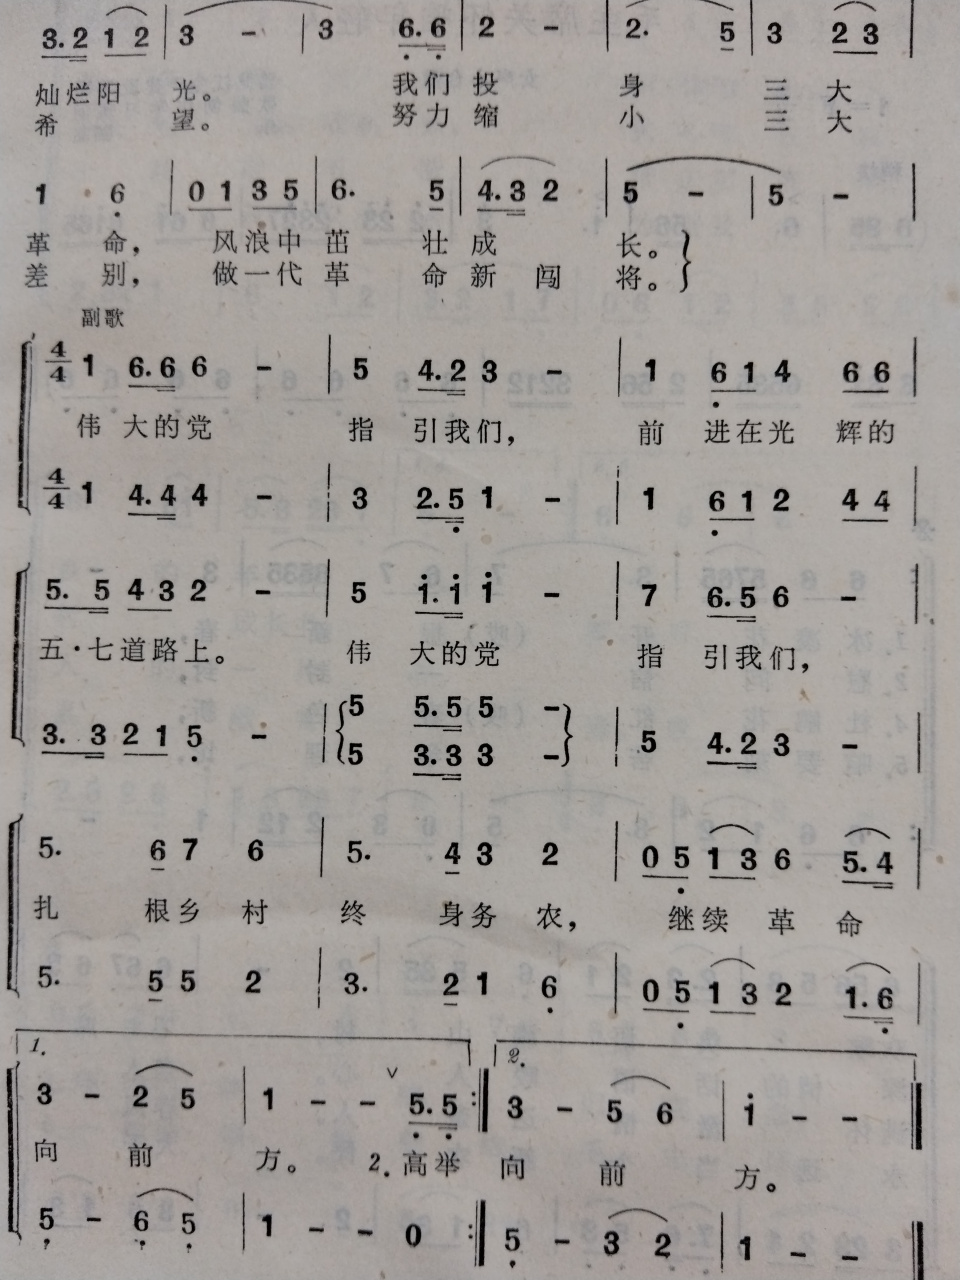 3. 2 1 2 | 3 - | 3 6. 6 | 2 - | 2. 5 | 3 2 3 |
灿烂阳 光。 我们 投 身 三 大
希 望。 努力 缩 小 三 大
1 6 | 0 1 3 5 | 6. 5 | 4. 3 2 | 5 - | 5 - |
革 命， 风浪中 茁 壮 成 长。
差 别， 做一代 革 命 新 闯 将。
副歌
4/4 1 6. 6 6 - | 5 4. 2 3 - | 1 6 1 4 6 6 |
伟 大的党 指 引我们， 前 进在光 辉的
4/4 1 4. 4 4 - | 3 2. 5 1 - | 1 6 1 2 4 4 |
5. 5 4 3 2 - | 5 i. i i - | 7 6. 5 6 - |
五·七道路上。 伟 大的党 指 引我们，
3. 3 2 1 5 - | { 5 5. 5 5 - } | 5 4. 2 3 - |
{ 5 3. 3 3 - }
5. 6 7 6 | 5. 4 3 2 | 0 5 1 3 6 5. 4 |
扎 根乡 村 终 身务 农， 继续 革 命
5. 5 5 2 | 3. 2 1 6 | 0 5 1 3 2 1. 6 |
1. 2.
3 - 2 5 | 1 - - ∨ 5. 5 :‖ 3 - 5 6 | i - - ‖
向 前 方。 2. 高举 向 前 方。
5 - 6 5 | 1 - - 0 :‖ 5 - 3 2 | 1 - - ‖